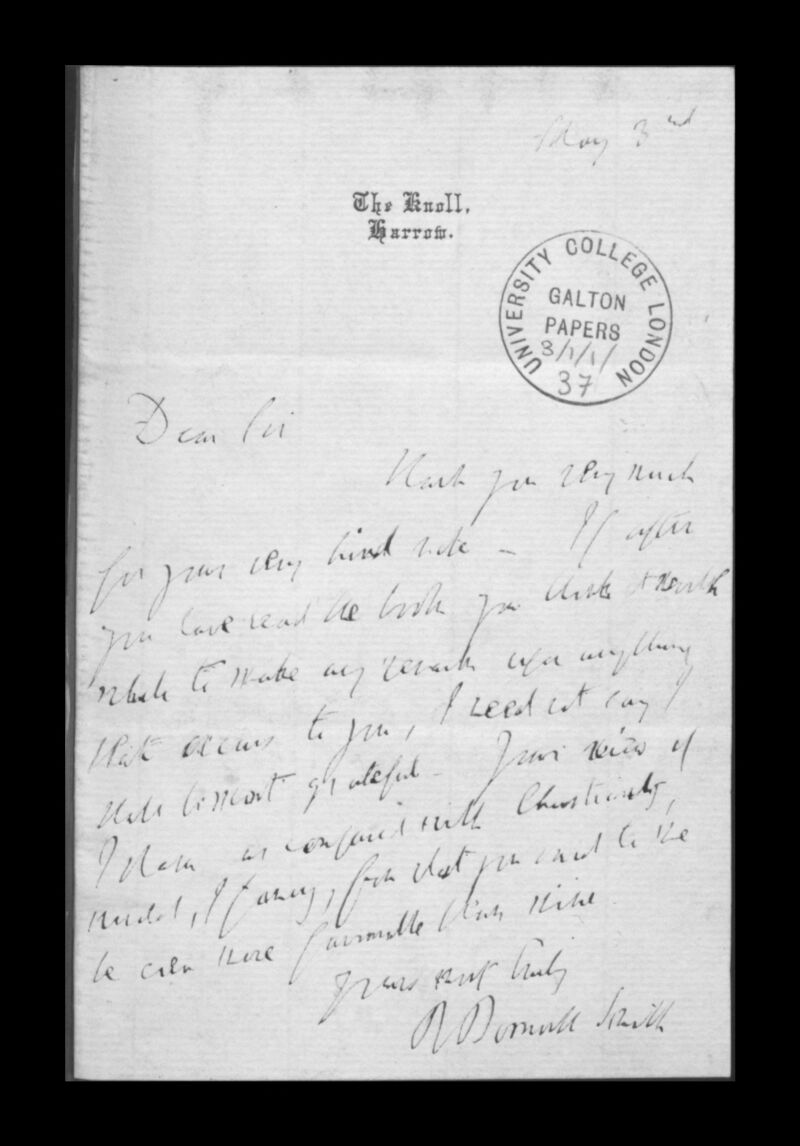 May 3rd
The Knoll,
Harrow.
UNIVERSITY COLLEGE LONDON
GALTON
PAPERS
3/1/1/
37
Dear Sir
Thank you very much
for your very kind note - If after
you have read the book you think it worth
while to make any remark upon anything
that occurs to you, I need not say I
shall be most grateful - Your view of
Islam as compared with Christianity,
would, I fancy, from what you said to me
be even more favourable than mine.
Yours most truly
R Bosworth Smith